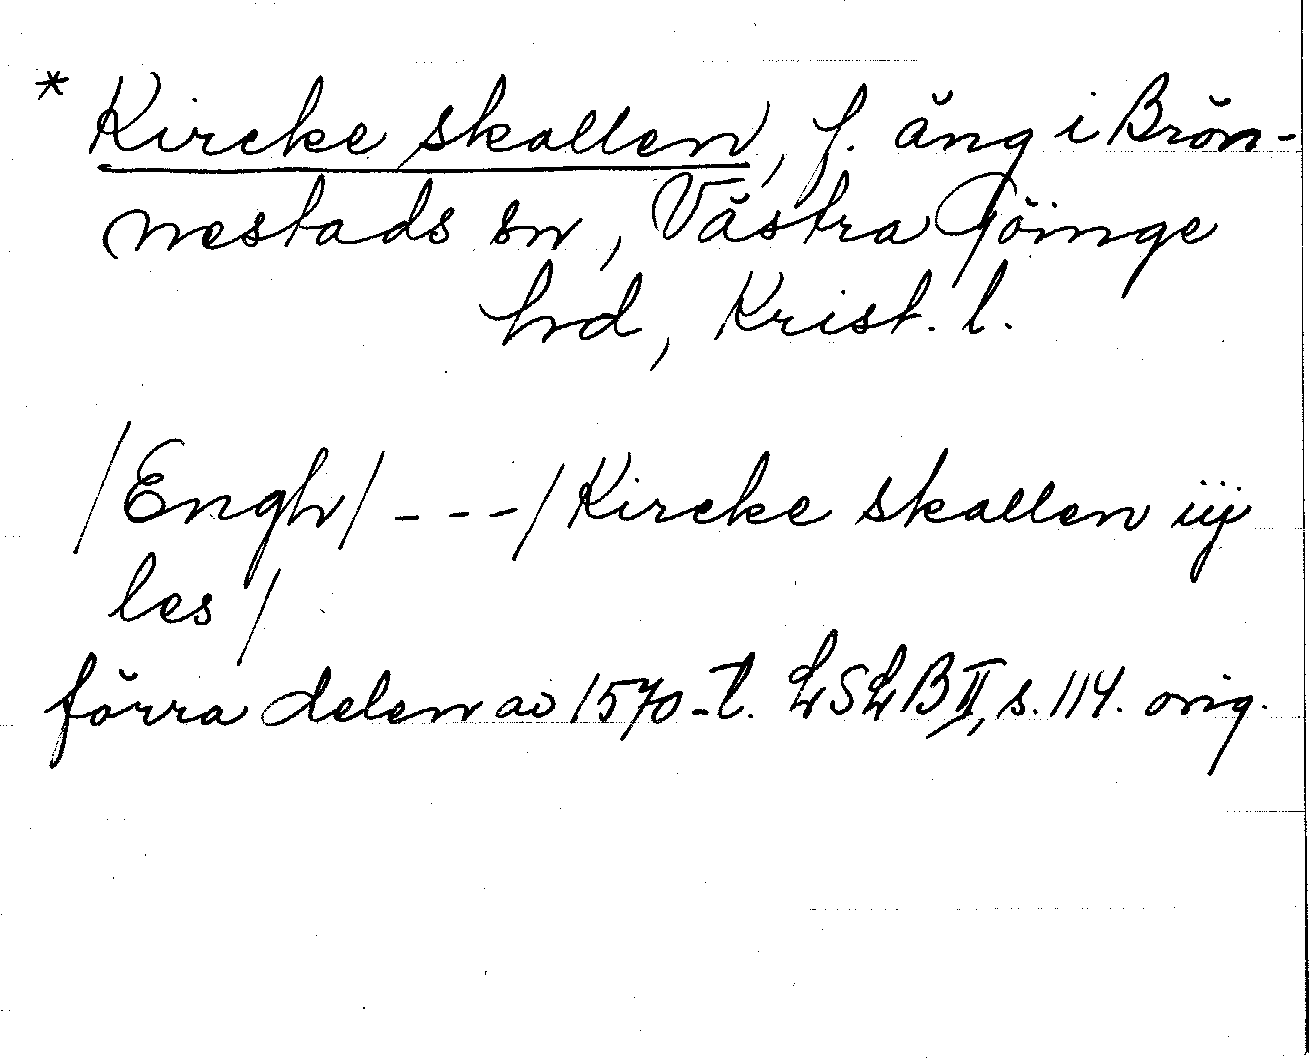 * Kircke skallen, f. äng i Brön-
nestads sn, Västra Göinge
hrd, Krist. l.
/Engh/ - - - / Kircke skallen iij
les /
förra delen av 1570-t. LSLB II, s. 114. orig.